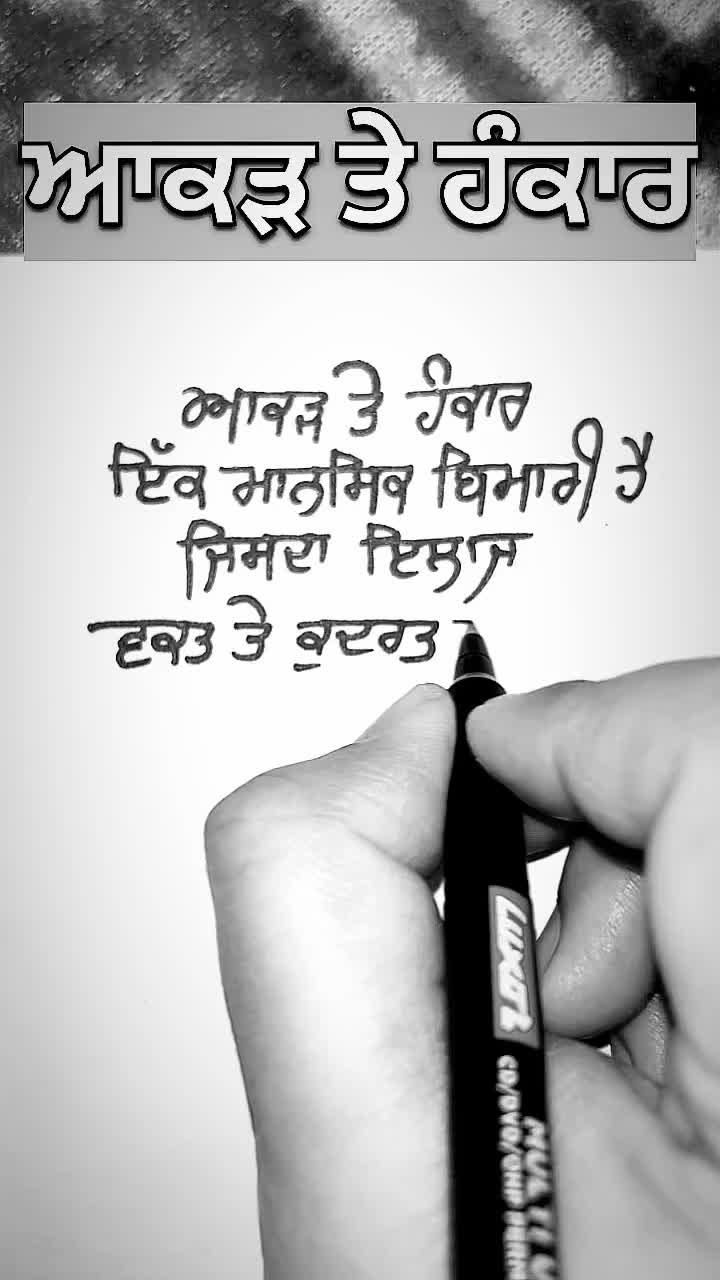 ਆਕੜ ਤੇ ਹੰਕਾਰ
ਆਕੜ ਤੇ ਹੰਕਾਰ
ਇੱਕ ਮਾਨਸਿਕ ਬਿਮਾਰੀ ਹੈ
ਜਿਸਦਾ ਇਲਾਜ
ਵਕਤ ਤੇ ਕੁਦਰਤ
LUXOR
CD/DVD/OHP